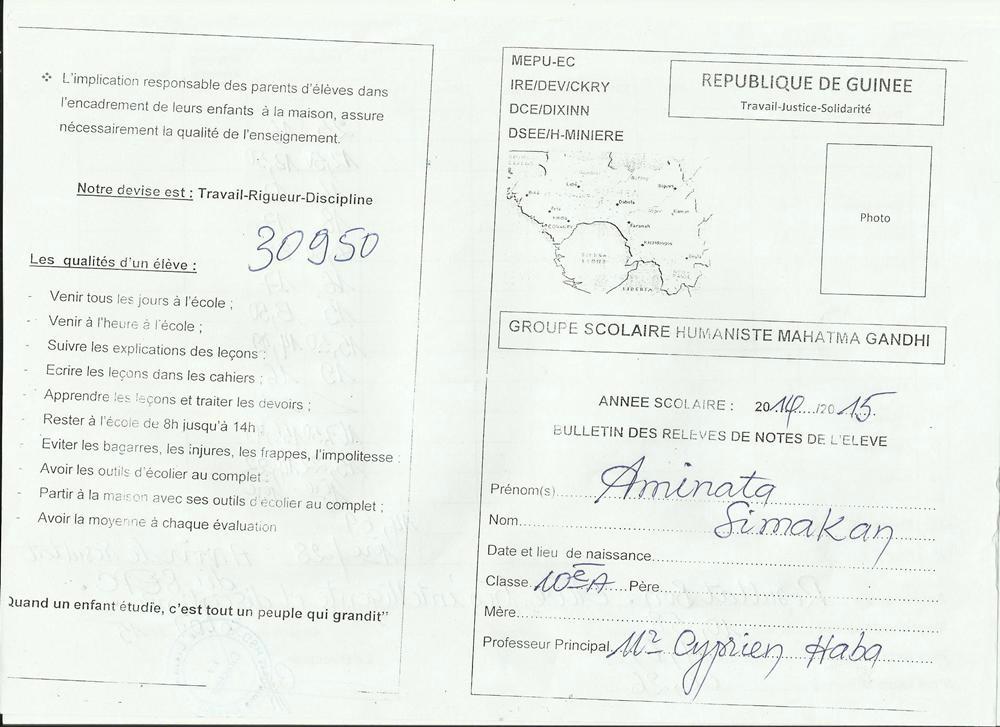 ❖ L'implication responsable des parents d'élèves dans
l'encadrement de leurs enfants à la maison, assure
nécessairement la qualité de l'enseignement.
Notre devise est : Travail-Rigueur-Discipline
30950
Les qualités d'un élève :
- Venir tous les jours à l'école ;
- Venir à l'heure à l'école ;
- Suivre les explications des leçons ;
- Ecrire les leçons dans les cahiers ;
- Apprendre les leçons et traiter les devoirs ;
- Rester à l'école de 8h jusqu'à 14h ;
- Eviter les bagarres, les injures, les frappes, l'impolitesse ;
- Avoir les outils d'écolier au complet ;
- Partir à la maison avec ses outils d'écolier au complet ;
- Avoir la moyenne à chaque évaluation
Quand un enfant étudie, c'est tout un peuple qui grandit"
MEPU-EC
IRE/DEV/CKRY
DCE/DIXINN
DSEE/H-MINIERE
REPUBLIQUE DE GUINEE
Travail-Justice-Solidarité
Photo
LIBERIA
GROUPE SCOLAIRE HUMANISTE MAHATMA GANDHI
ANNEE SCOLAIRE : 2014..../2015.
BULLETIN DES RELEVES DE NOTES DE L'ELEVE
Prénom(s) Aminata
Nom Simakan
Date et lieu de naissance
Classe 10e A Père
Mère
Professeur Principal Mr Cyprien Haba